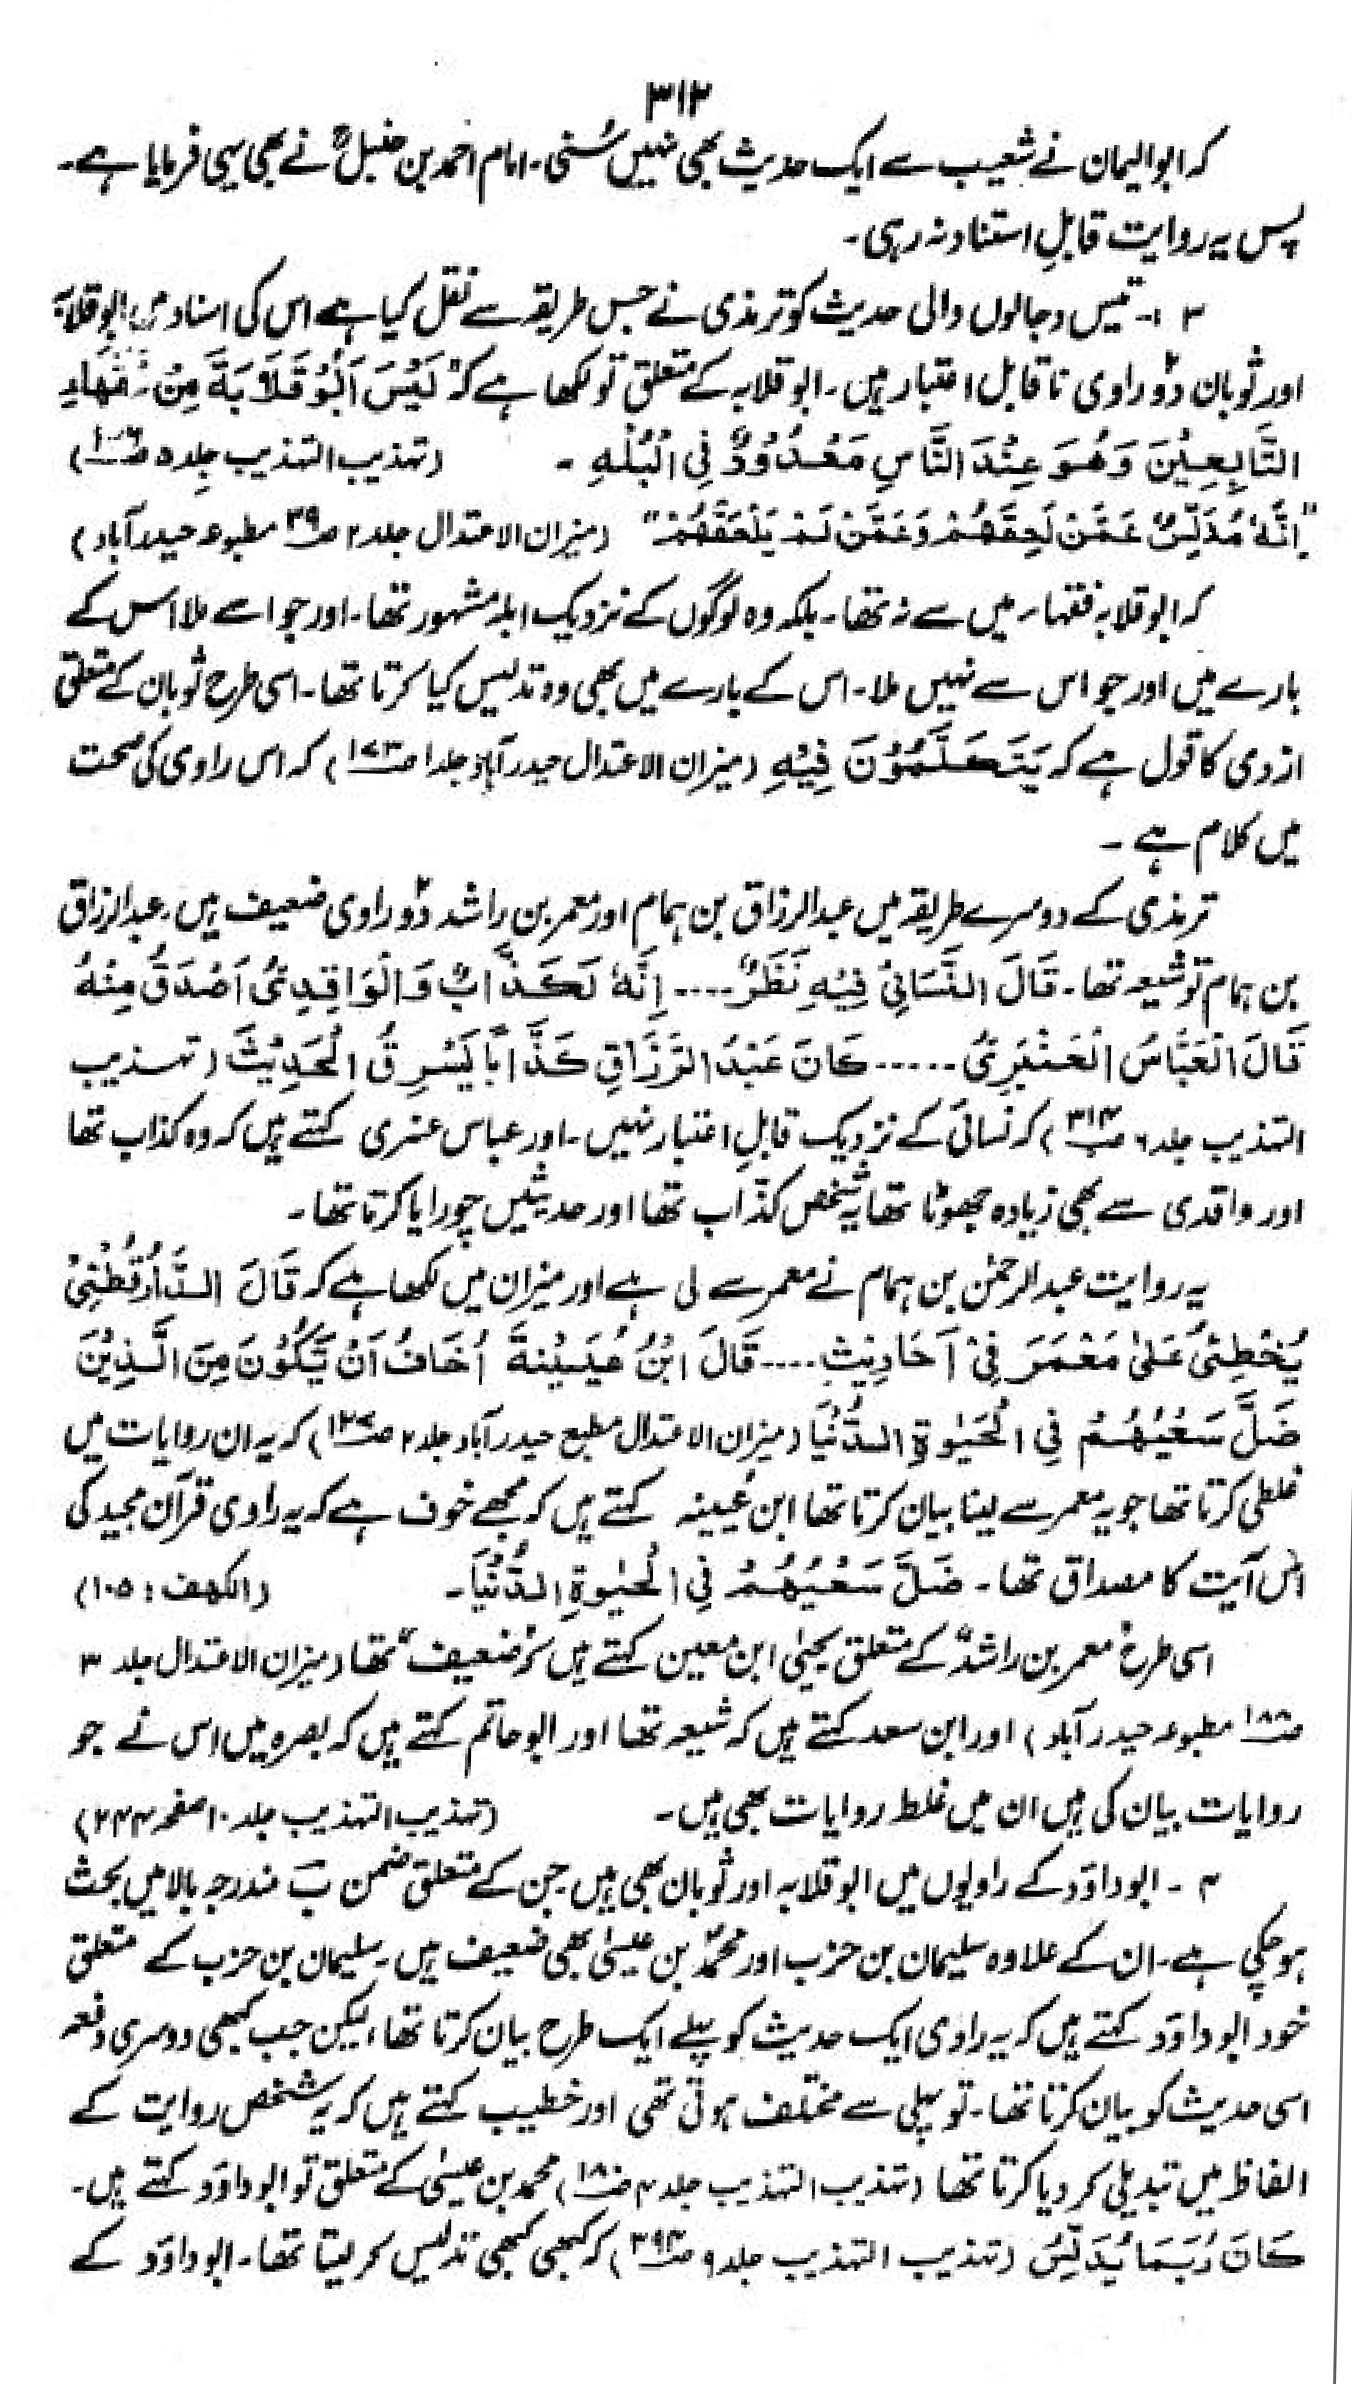 ۳۱۲
کہ ابوالیمان نے شعیب سے ایک حدیث بھی نہیں سُنی۔ امام احمد بن حنبلؒ نے بھی یہی فرمایا ہے۔
پس یہ روایت قابلِ استناد نہ رہی۔
۳ :۔ تیس دجالوں والی حدیث کو ترمذی نے جس طریقہ سے نقل کیا ہے اس کی اسناد میں ابوقلابہ
اور ثوبان دو راوی ناقابل اعتبار ہیں۔ ابوقلابہ کے متعلق تو لکھا ہے کہ "لَیْسَ اَبُوْ قَلَابَةَ مِنْ فُقَهَاءِ
التَّابِعِیْنَ وَهُوَ عِنْدَ النَّاسِ مَعْدُوْدٌ فِی الْبُلْهِ ۔ (تہذیب التہذیب جلد ۵
"اِنَّهٗ مُدَلِّسٌ عَمَّنْ لَحِقَهُمْ وَعَمَّنْ لَمْ یَلْحَقْهُمْ" (میزان الاعتدال جلد ۲ ص۳۹ مطبوعہ حیدرآباد)
کہ ابوقلابہ فقہاء میں سے نہ تھا۔ بلکہ وہ لوگوں کے نزدیک ابلہ مشہور تھا۔ اور جو اسے ملا اس کے
بارے میں اور جو اس سے نہیں ملا۔ اس کے بارے میں بھی وہ تدلیس کیا کرتا تھا۔ اسی طرح ثوبان کے متعلق
ازدی کا قول ہے کہ یَتَکَلَّمُوْنَ فِیْهِ (میزان الاعتدال حیدرآباد جلد ۱ ص۱۷۳) کہ اس راوی کی صحت
میں کلام ہے ۔
ترمذی کے دوسرے طریقہ میں عبدالرزاق بن ہمام اور معمر بن راشد دو راوی ضعیف ہیں۔ عبدالرزاق
بن ہمام تو شیعہ تھا۔ قَالَ النَّسَائِیُّ فِیْهِ نَظَرٌ .... اِنَّهٗ لَکَذَّابٌ وَالْوَاقِدِیُّ اَصْدَقُ مِنْهُ
قَالَ الْعَبَّاسُ الْعَنْبَرِیُّ ...... کَانَ عَبْدُ الرَّزَّاقِ کَذَّابًا یَسْرِقُ الْحَدِیْثَ (تہذیب
التہذیب جلد ۶ ص۳۱۴) کہ نسائی کے نزدیک قابلِ اعتبار نہیں۔ اور عباس عنبری کہتے ہیں کہ وہ کذاب تھا
اور واقدی سے بھی زیادہ جھوٹا تھا یہ شخص کذّاب تھا اور حدیثیں چورایا کرتا تھا۔
یہ روایت عبدالرحمٰن بن ہمام نے معمر سے لی ہے اور میزان میں لکھا ہے کہ قَالَ الدَّارُقُطْنِیُّ
یُخْطِئُ عَلٰی مَعْمَرَ فِیْ اَحَادِیْثِ .... قَالَ ابْنُ عُیَیْنَةَ اُخَافُ اَنْ یَّکُوْنَ مِنَ الَّذِیْنَ
ضَلَّ سَعْیُهُمْ فِی الْحَیٰوةِ الدُّنْیَا (میزان الاعتدال مطبع حیدرآباد جلد ۲ ص۱۲۷) کہ یہ ان روایات میں
غلطی کرتا تھا جو یہ معمر سے لینا بیان کرتا تھا ابن عُیینہ کہتے ہیں کہ مجھے خوف ہے کہ یہ راوی قرآن مجید کی
اس آیت کا مصداق تھا۔ ضَلَّ سَعْیُهُمْ فِی الْحَیٰوةِ الدُّنْیَا۔ (الکهف : ۱۰۵)
اسی طرح معمر بن راشد کے متعلق یحییٰ ابن معین کہتے ہیں کہ "ضعیف" تھا (میزان الاعتدال جلد ۳
ص۱۸۸ مطبوعہ حیدرآباد) اور ابن سعد کہتے ہیں کہ شیعہ تھا اور ابوحاتم کہتے ہیں کہ بصرہ میں اس نے جو
روایات بیان کی ہیں ان میں غلط روایات بھی ہیں۔ (تہذیب التہذیب جلد ۱۰ صفحہ ۲۴۴)
۴ ۔ ابوداؤد کے راویوں میں ابوقلابہ اور ثوبان بھی ہیں جن کے متعلق ضمن ب مندرجہ بالا میں بحث
ہو چکی ہے۔ ان کے علاوہ سلیمان بن حرب اور محمد بن عیسیٰ بھی ضعیف ہیں۔ سلیمان بن حرب کے متعلق
خود ابوداؤد کہتے ہیں کہ یہ راوی ایک حدیث کو پہلے ایک طرح بیان کرتا تھا، لیکن جب کبھی دوسری دفعہ
اسی حدیث کو بیان کرتا تھا۔ تو پہلی سے مختلف ہوتی تھی اور خطیب کہتے ہیں کہ یہ شخص روایت کے
الفاظ میں تبدیلی کر دیا کرتا تھا (تہذیب التہذیب جلد ۴ ص۱۸۰) محمد بن عیسیٰ کے متعلق تو ابوداؤد کہتے ہیں۔
کَانَ رُبَمَا یُدَلِّسُ (تہذیب التہذیب جلد ۹ ص۳۹۴) کہ کبھی کبھی تدلیس کر لیتا تھا۔ ابوداؤد کے